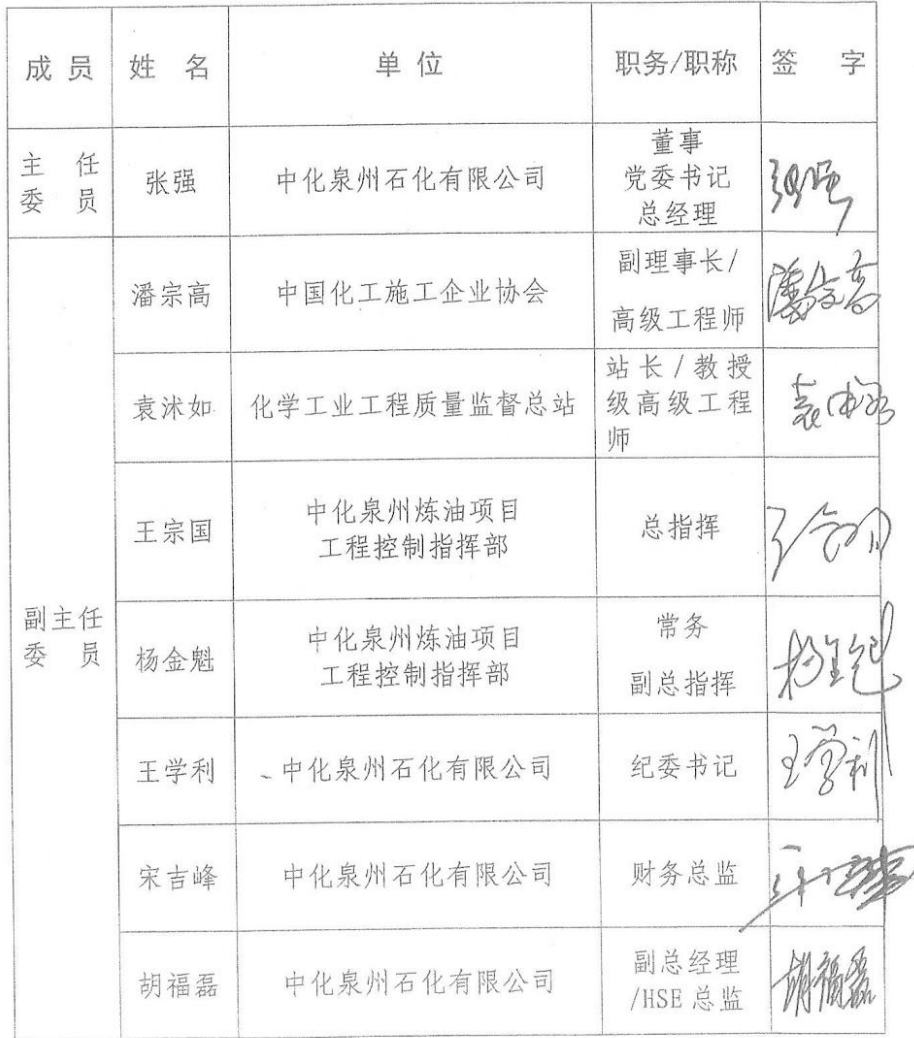 成 员 姓 名 单 位 职务/职称 签 字
主 任
委 员
张强
中化泉州石化有限公司
董事
党委书记
总经理
张强
副主任
委 员
潘宗高
中国化工施工企业协会
副理事长/
高级工程师
潘宗高
袁沭如
化学工业工程质量监督总站
站长/教授
级高级工程
师
王宗国
中化泉州炼油项目
工程控制指挥部
总指挥
杨金魁
中化泉州炼油项目
工程控制指挥部
常务
副总指挥
杨金魁
王学利
中化泉州石化有限公司
纪委书记
王学利
宋吉峰
中化泉州石化有限公司
财务总监
胡福磊
中化泉州石化有限公司
副总经理
/HSE 总监
胡福磊